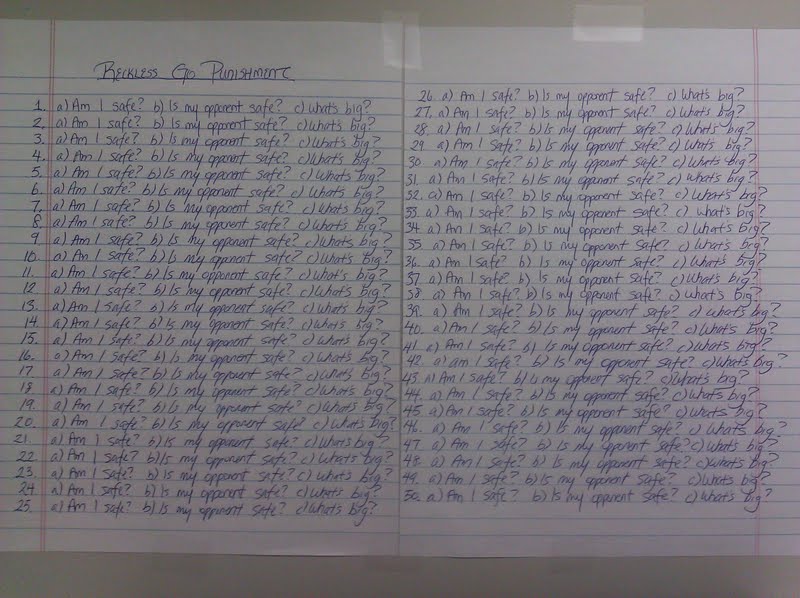 Reckless Go Punishment
1. a) Am I safe? b) Is my opponent safe? c) What's big?
2. a) Am I safe? b) Is my opponent safe? c) What's big?
3. a) Am I safe? b) Is my opponent safe? c) What's big?
4. a) Am I safe? b) Is my opponent safe? c) What's big?
5. a) Am I safe? b) Is my opponent safe? c) What's big?
6. a) Am I safe? b) Is my opponent safe? c) What's big?
7. a) Am I safe? b) Is my opponent safe? c) What's big?
8. a) Am I safe? b) Is my opponent safe? c) What's big?
9. a) Am I safe? b) Is my opponent safe? c) What's big?
10. a) Am I safe? b) Is my opponent safe? c) What's big?
11. a) Am I safe? b) Is my opponent safe? c) What's big?
12. a) Am I safe? b) Is my opponent safe? c) What's big?
13. a) Am I safe? b) Is my opponent safe? c) What's big?
14. a) Am I safe? b) Is my opponent safe? c) What's big?
15. a) Am I safe? b) Is my opponent safe? c) What's big?
16. a) Am I safe? b) Is my opponent safe? c) What's big?
17. a) Am I safe? b) Is my opponent safe? c) What's big?
18. a) Am I safe? b) Is my opponent safe? c) What's big?
19. a) Am I safe? b) Is my opponent safe? c) What's big?
20. a) Am I safe? b) Is my opponent safe? c) What's big?
21. a) Am I safe? b) Is my opponent safe? c) What's big?
22. a) Am I safe? b) Is my opponent safe? c) What's big?
23. a) Am I safe? b) Is my opponent safe? c) What's big?
24. a) Am I safe? b) Is my opponent safe? c) What's big?
25. a) Am I safe? b) Is my opponent safe? c) What's big?
26. a) Am I safe? b) Is my opponent safe? c) What's big?
27. a) Am I safe? b) Is my opponent safe? c) What's big?
28. a) Am I safe? b) Is my opponent safe? c) What's big?
29. a) Am I safe? b) Is my opponent safe? c) What's big?
30. a) Am I safe? b) Is my opponent safe? c) What's big?
31. a) Am I safe? b) Is my opponent safe? c) What's big?
32. a) Am I safe? b) Is my opponent safe? c) What's big?
33. a) Am I safe? b) Is my opponent safe? c) What's big?
34. a) Am I safe? b) Is my opponent safe? c) What's big?
35. a) Am I safe? b) Is my opponent safe? c) What's big?
36. a) Am I safe? b) Is my opponent safe? c) What's big?
37. a) Am I safe? b) Is my opponent safe? c) What's big?
38. a) Am I safe? b) Is my opponent safe? c) What's big?
39. a) Am I safe? b) Is my opponent safe? c) What's big?
40. a) Am I safe? b) Is my opponent safe? c) What's big?
41. a) Am I safe? b) Is my opponent safe? c) What's big?
42. a) am I safe? b) Is my opponent safe? c) What's big?
43. a) Am I safe? b) Is my opponent safe? c) What's big?
44. a) Am I safe? b) Is my opponent safe? c) What's big?
45. a) Am I safe? b) Is my opponent safe? c) What's big?
46. a) Am I safe? b) Is my opponent safe? c) What's big?
47. a) Am I safe? b) Is my opponent safe? c) What's big?
48. a) Am I safe? b) Is my opponent safe? c) What's big?
49. a) Am I safe? b) Is my opponent safe? c) What's big?
50. a) Am I safe? b) Is my opponent safe? c) What's big?